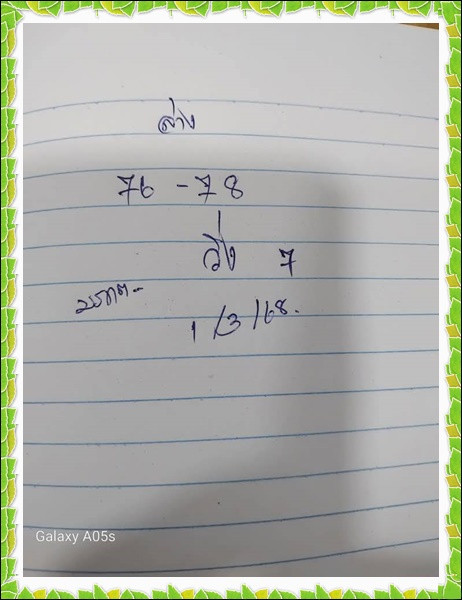 ล่าง
76 - 78
วิ่ง 7
1/3/68.
Galaxy A05s